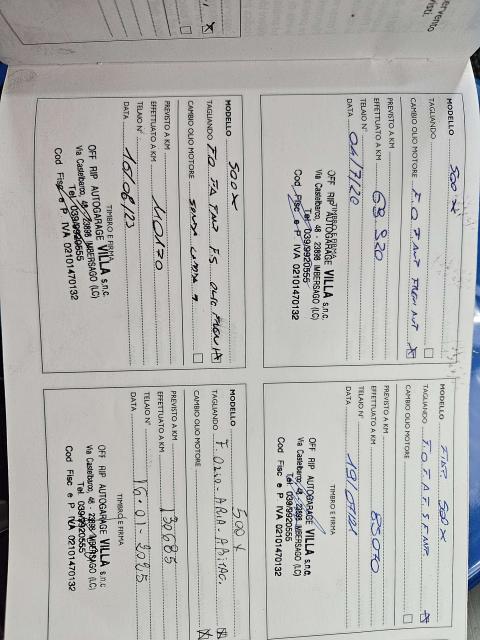 MODELLO 500 X
TAGLIANDO
CAMBIO OLIO MOTORE
PREVISTO A KM
EFFETTUATO A KM 63 920
TELAIO N°
DATA 04/7/20
TIMBRO E FIRMA
OFF RIP AUTOGARAGE VILLA s.n.c.
Via Castelbarco, 48 - 23898 IMBERSAGO (LC)
Tel 039/9920555
Cod Fisc e P IVA 02101470132
MODELLO FIAT 500X
TAGLIANDO
CAMBIO OLIO MOTORE
PREVISTO A KM
EFFETTUATO A KM 85070
TELAIO N°
DATA
TIMBRO E FIRMA
OFF RIP AUTOGARAGE VILLA s.n.c.
Via Castelbarco, 48 - 23898 IMBERSAGO (LC)
Tel 039/9920555
Cod Fisc e P IVA 02101470132
MODELLO 500X
TAGLIANDO
CAMBIO OLIO MOTORE
PREVISTO A KM
EFFETTUATO A KM 110170
TELAIO N°
DATA 16/06/23
TIMBRO E FIRMA
OFF RIP AUTOGARAGE VILLA s.n.c.
Via Castelbarco, 48 - 23898 IMBERSAGO (LC)
Tel 039/9920555
Cod Fisc e P IVA 02101470132
MODELLO 500 X
TAGLIANDO F. OLIO - ARIA - ABITAC.
CAMBIO OLIO MOTORE
PREVISTO A KM
EFFETTUATO A KM 130685
TELAIO N°
DATA 16-01-2025
TIMBRO E FIRMA
OFF RIP AUTOGARAGE VILLA s.n.c.
Via Castelbarco, 48 - 23898 IMBERSAGO (LC)
Tel 039/9920555
Cod Fisc e P IVA 02101470132